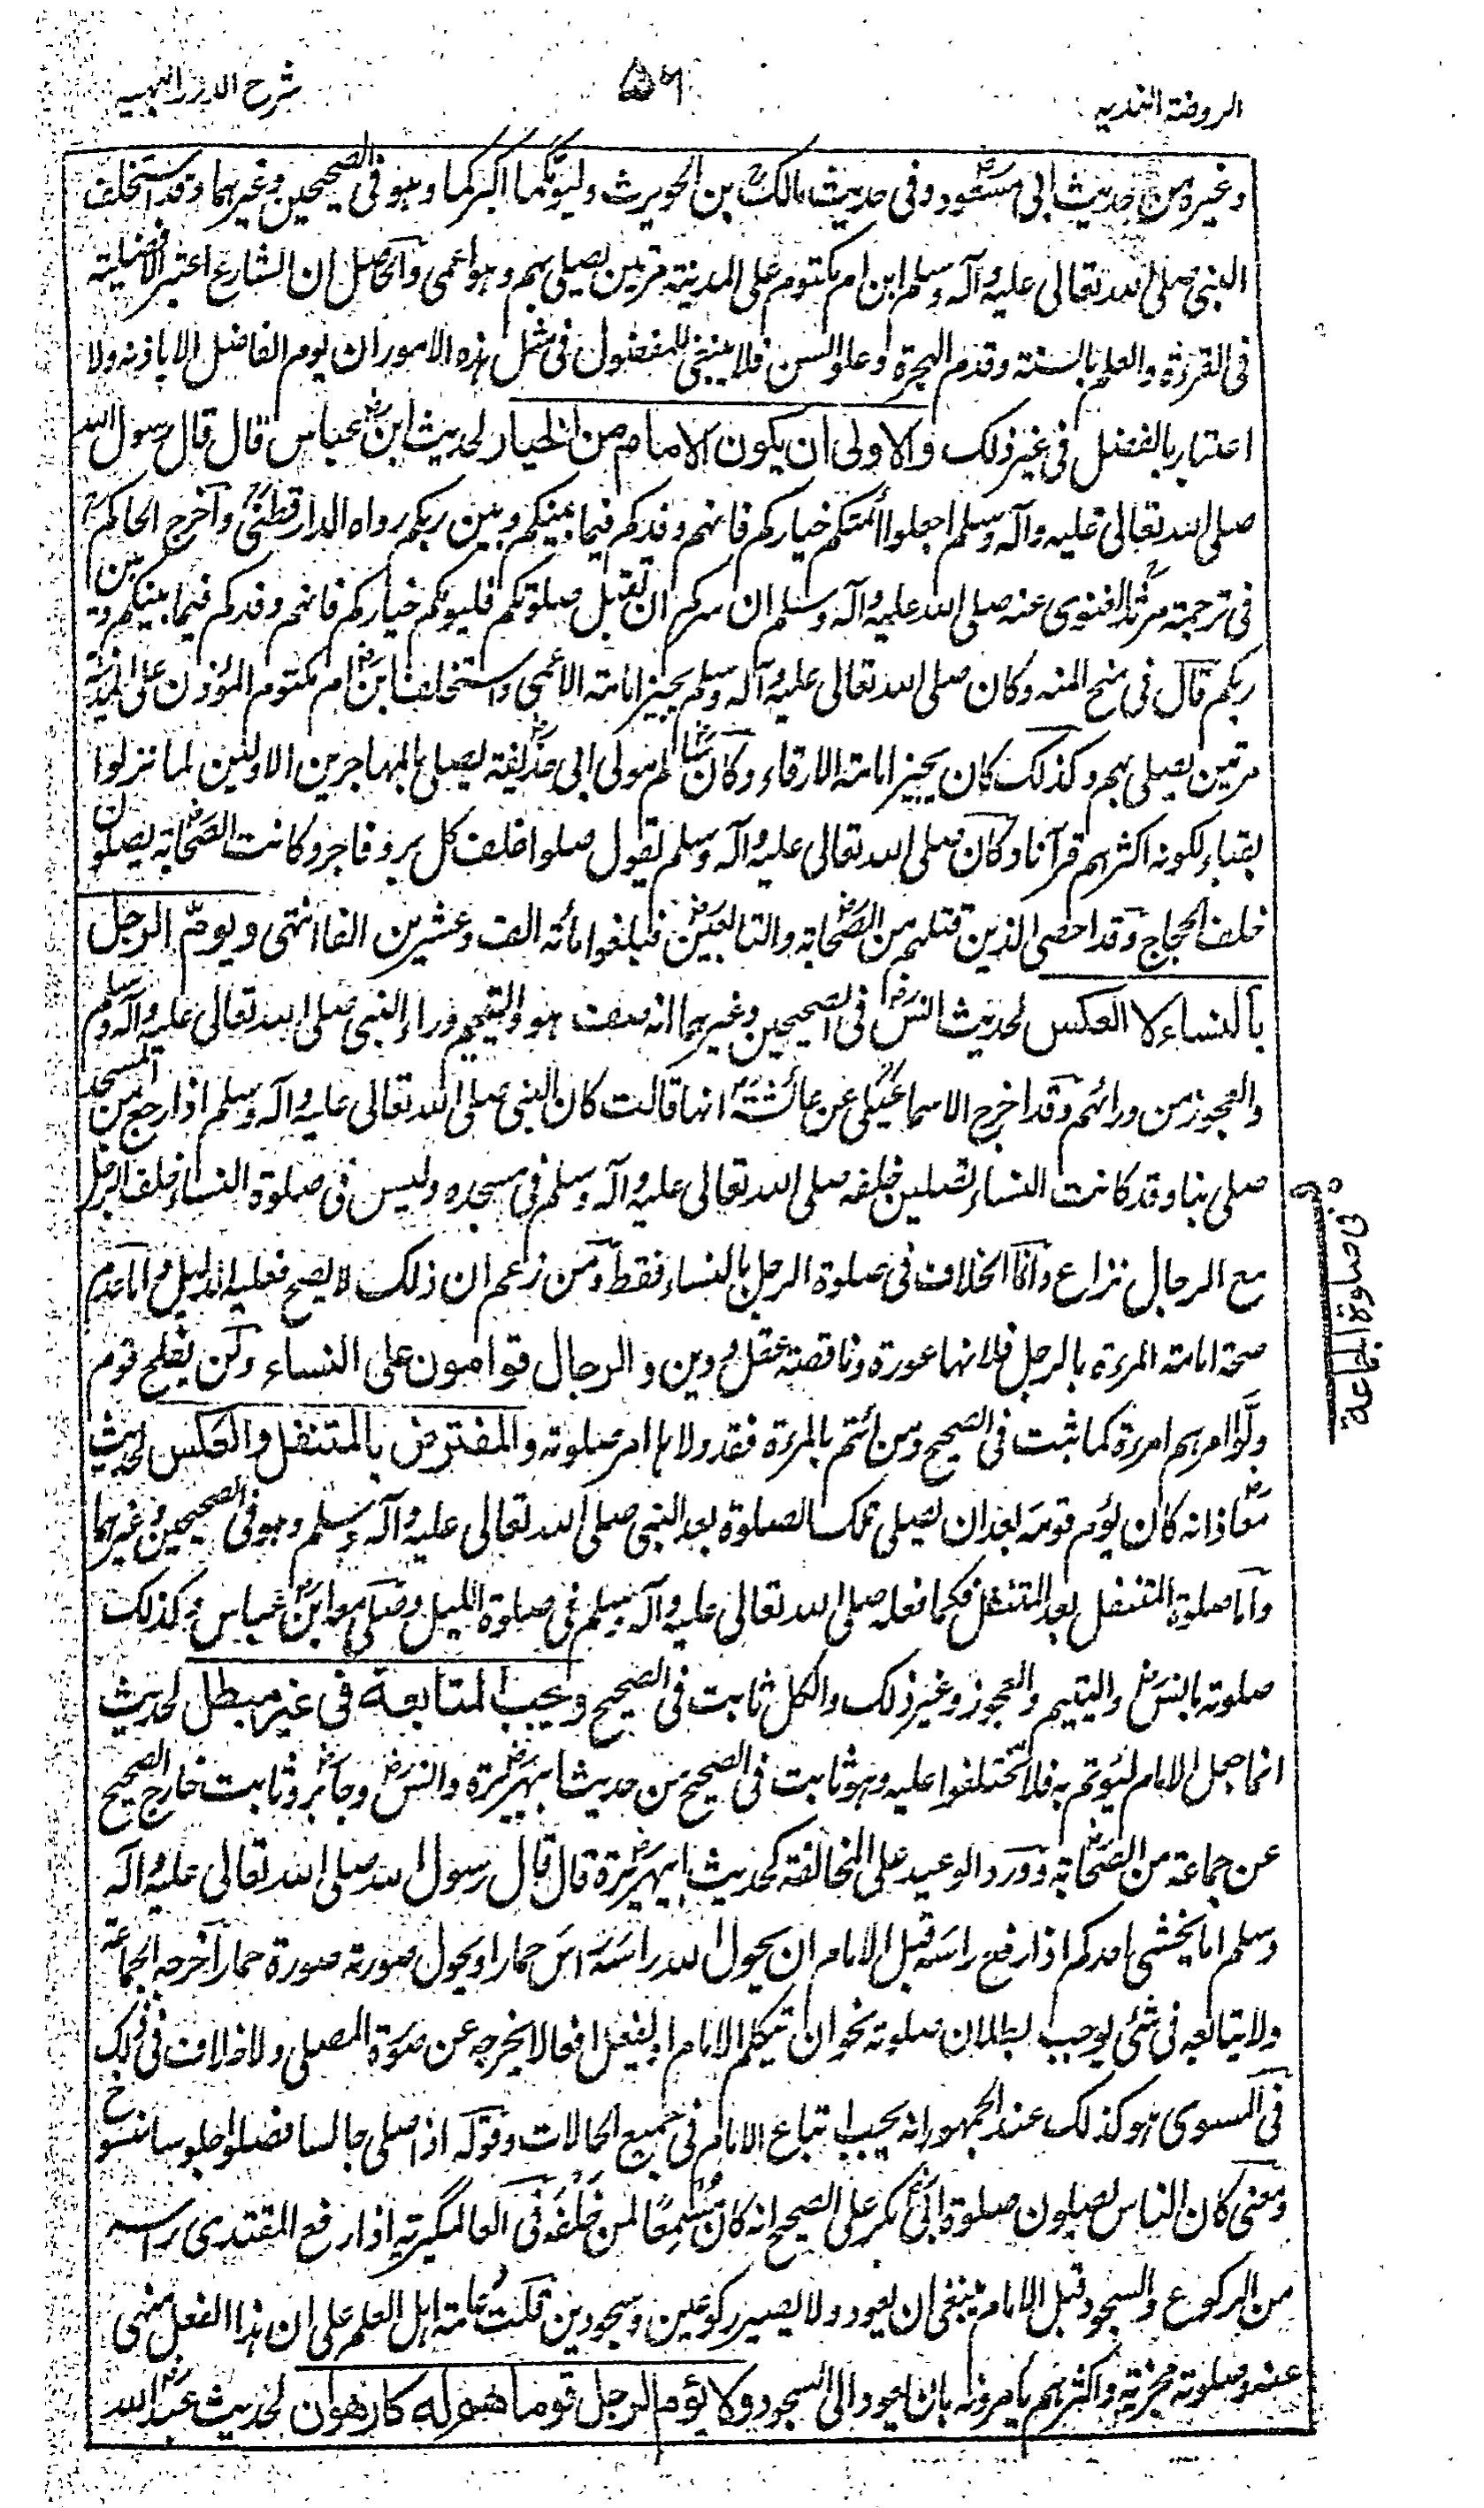 الروضة الندیه
۵۶
شرح الدرر البهیه
وغیره من حدیث ابی مسعود وفی حدیث مالک بن الحویرث ولیؤمکما اکبرکما وہو فی الصحیحین وغیرہما وقد استخلف
النبی صلی اللہ تعالی علیہ وآلہ وسلم ابن ام مکتوم علی المدینة مرتین یصلی بہم وہو اعمی والحاصل ان الشارع اعتبر الافضلیة
فی القراءة والعلم بالسنة وقدم الہجرة وعلو السن فلا ینبغی للمفضول فی مثل ہذہ الامور ان یوم الفاضل الا باذنہ ولا
اعتبار بالفضل فی غیر ذلک والاولی ان یکون الامام من الخیار لحدیث ابن عباس قال قال رسول اللہ
صلی اللہ تعالی علیہ وآلہ وسلم اجعلوا أئمتکم خیارکم فانہم وفدکم فیما بینکم وبین ربکم رواہ الدارقطنی وآخرج الحاکم
فی ترجمة مرثد الغنوی عنہ صلی اللہ علیہ وآلہ وسلم ان سرکم ان تقبل صلوتکم فلیؤمکم خیارکم فانہم وفدکم فیما بینکم وبین
ربکم قال فی منح المنہ وکان صلی اللہ تعالی علیہ وآلہ وسلم یجیز امامة الأعمی واستخلف ابن ام مکتوم المؤذن علی المدینة
مرتین یصلی بہم وکذلک کان یجیز امامة الارقاء وکان سالم مولی ابی حذیفة یصلی بالمہاجرین الاولین لما نزلوا
بقباء لکونہ اکثرہم قرآنا وکان صلی اللہ تعالی علیہ وآلہ وسلم یقول صلوا خلف کل بر وفاجر وکانت الصحابة یصلون
خلف الحجاج وقد احصی الذین قتلہم من الصحابة والتابعین فبلغوا مائة الف وعشرین الفا انتہی ویؤم الرجل
بالنساء لا العکس لحدیث انس فی الصحیحین وغیرہما انہ صف ہو والیتیم وراء النبی صلی اللہ تعالی علیہ وآلہ وسلم
والعجوز من ورائہم وقد اخرج الاسماعیلی عن عائشة انہا قالت کان النبی صلی اللہ تعالی علیہ وآلہ وسلم اذا رجع من المسجد
صلی بنا وقد کانت النساء تصلین خلفہ صلی اللہ تعالی علیہ وآلہ وسلم فی مسجدہ ولیس فی صلوة النساء خلف الرجل
مع الرجال نزاع وانما الخلاف فی صلوة الرجل بالنساء فقط ومن زعم ان ذلک لا یصح فعلیہ الدلیل واما عدم
صحة امامة المرءة بالرجل فلانہا عورة وناقصة عقل ودین والرجال قوامون علی النساء ولن یفلح قوم
ولّوا امرہم امرءة کما ثبت فی الصحیح ومن ائتم بالمرءة فقد ولاہا امر صلوتہ والمفترض بالمتنفل والعکس لحدیث
معاذ انہ کان یؤم قومہ بعد ان یصلی تلک الصلوة بعد النبی صلی اللہ تعالی علیہ وآلہ وسلم وہو فی الصحیحین وغیرہما
واما صلوة المتنفل بعد المتنفل فکما فعلہ صلی اللہ تعالی علیہ وآلہ وسلم فی صلوة اللیل وصلی معہ ابن عباس وکذلک
صلوتہ بانس والیتیم والعجوز وغیر ذلک والکل ثابت فی الصحیح ویجب المتابعة فی غیر مبطل لحدیث
انما جعل الامام لیؤتم بہ فلا تختلفوا علیہ وہو ثابت فی الصحیح من حدیث ابیہریرة وانس وجابر وثابت خارج الصحیح
عن جماعة من الصحابة وورد الوعید علی المخالفة کحدیث ابیہریرة قال قال رسول اللہ صلی اللہ تعالی علیہ وآلہ
وسلم اما یخشی احدکم اذا رفع راسہ قبل الامام ان یحول اللہ راسہ راس حمار او یحول صورتہ صورة حمار آخرجہ الجماعة
ولا یتابعہ فی شئ یوجب بطلان صلوتہ نحو ان یتکلم الامام او یفعل افعالا یخرجہ عن صورة المصلی ولا خلاف فی ذلک
فی المسوی ہو کذلک عند الجمہور انہ یجب اتباع الامام فی جمیع الحالات وقولہ اذا صلی جالسا فصلوا جلوسا منسوخ
ومعنی کان الناس یصلون صلوة ابی بکر علی الصحیح انہ کان مُسْمِعًا لمن خَلْفَہ فی العالمگیریة اذا رفع المقتدی راسہ
من الرکوع والسجود قبل الامام ینبغی ان یعود ولا یصیر رکوعین وسجودین قلت عامة اہل العلم علی ان ہذا الفعل منہی
عنہ وصلوتہ مجزیة واکثرہم یامرونہ بان یعود الی السجود ولا یؤم الرجل قوما ھم له کارھون لحدیث عبد اللہ
فی صلوة الجماعة